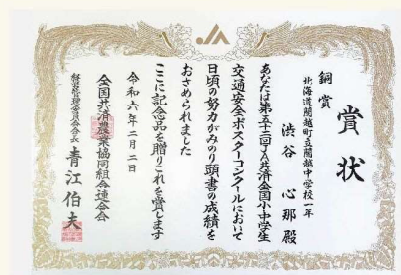 JA
賞状
銅賞
北海道蘭越町立蘭越中学校一年
渋谷 心那 殿
あなたは第五十二回JA共済全国小中学生
交通安全ポスターコンクールにおいて
日頃の努力がみのり頭書の成績を
おさめられました
ここに記念品を贈りこれを賞します
令和六年二月二日
全国共済農業協同組合連合会
経営管理委員会会長 青江伯夫